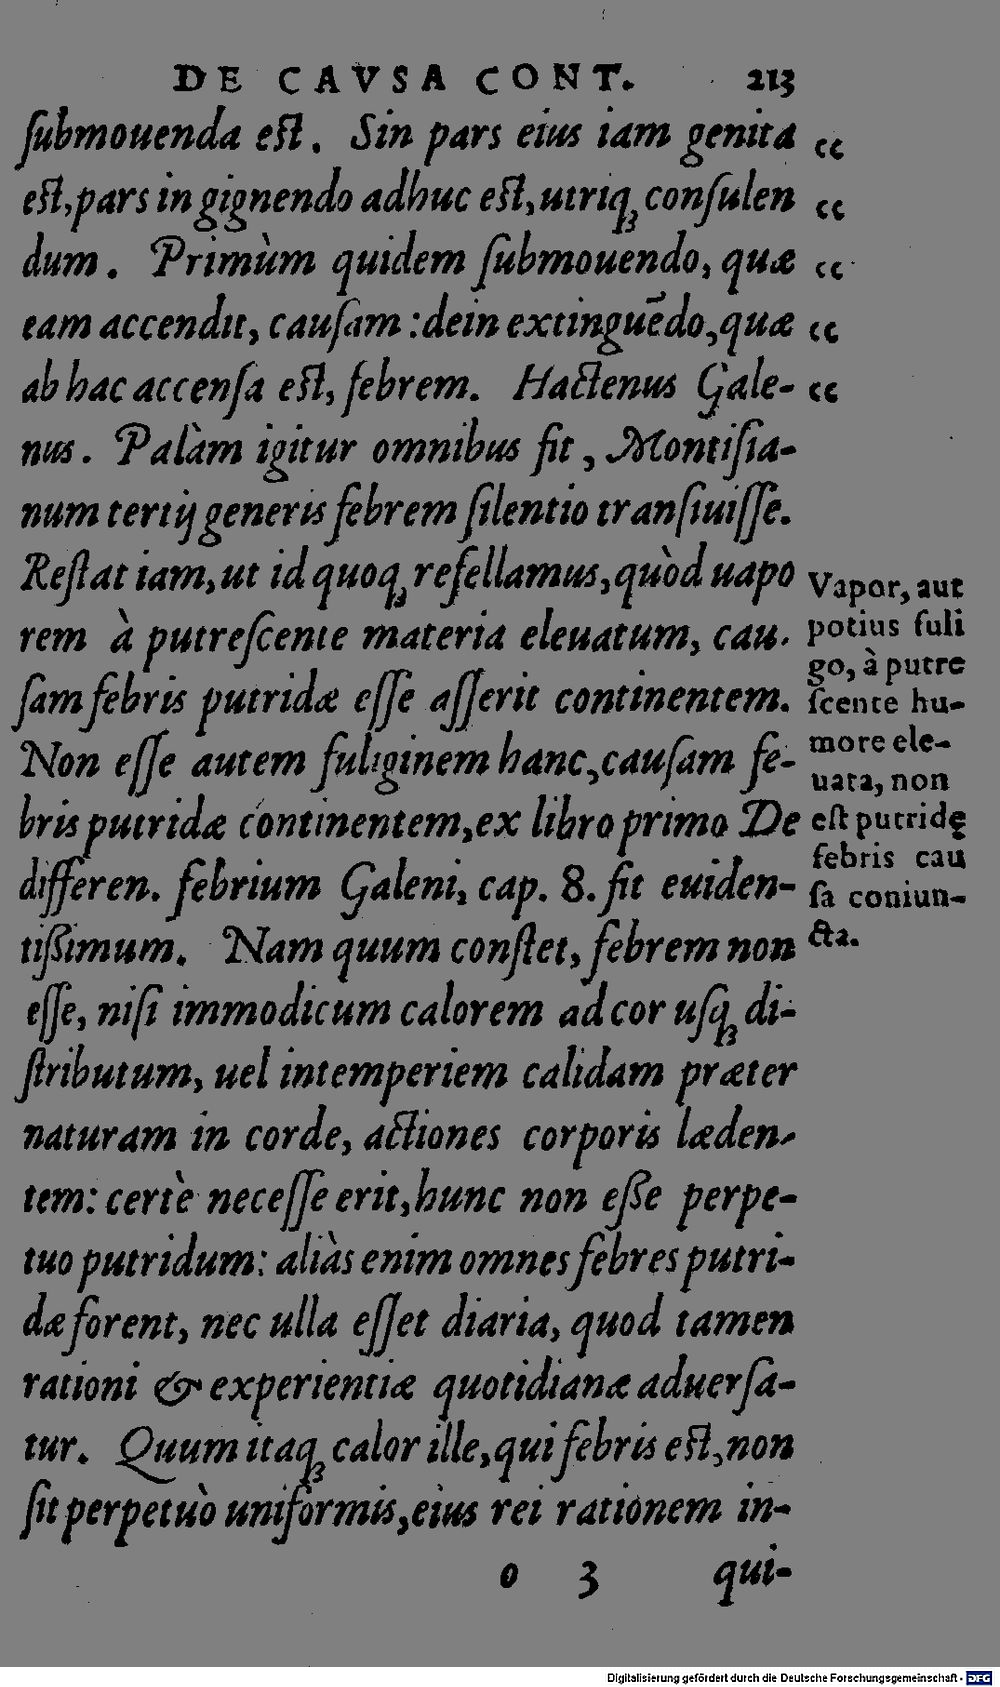 DE CAVSA CONT. 213
ſubmouenda eſt. Sin pars eius iam genita
eſt, pars in gignendo adhuc eſt, utriqꝫ conſulen
dum. Primùm quidem ſubmouendo, quæ
eam accendit, cauſam: dein extinguēdo, quæ
ab hac accenſa eſt, febrem. Hactenus Gale-
nus. Palàm igitur omnibus fit, Montiſia-
num tertij generis febrem ſilentio tranſiuiſſe.
Reſtat iam, ut id quoqꝫ refellamus, quòd uapo
rem à putreſcente materia eleuatum, cau-
ſam febris putridæ eſſe aſſerit continentem.
Non eſſe autem fuliginem hanc, cauſam fe-
bris putridæ continentem, ex libro primo De
differen. febrium Galeni, cap. 8. fit euiden-
tiſsimum. Nam quum conſtet, febrem non
eſſe, niſi immodicum calorem ad cor uſqꝫ di-
ſtributum, uel intemperiem calidam præter
naturam in corde, actiones corporis læden-
tem: certè neceſſe erit, hunc non eſse perpe-
tuo putridum: aliàs enim omnes febres putri-
dæ forent, nec ulla eſſet diaria, quod tamen
rationi & experientiæ quotidianæ aduerſa-
tur. Quum itaqꝫ calor ille, qui febris eſt, non
ſit perpetuò uniformis, eius rei rationem in-
o 3 qui-
“
“
“
“
“
Vapor, aut
potius fuli
go, à putre
ſcente hu-
more ele-
uata, non
eſt putridę
febris cau
ſa coniun-
cta.
Digitalisierung gefördert durch die Deutsche Forschungsgemeinschaft - DFG